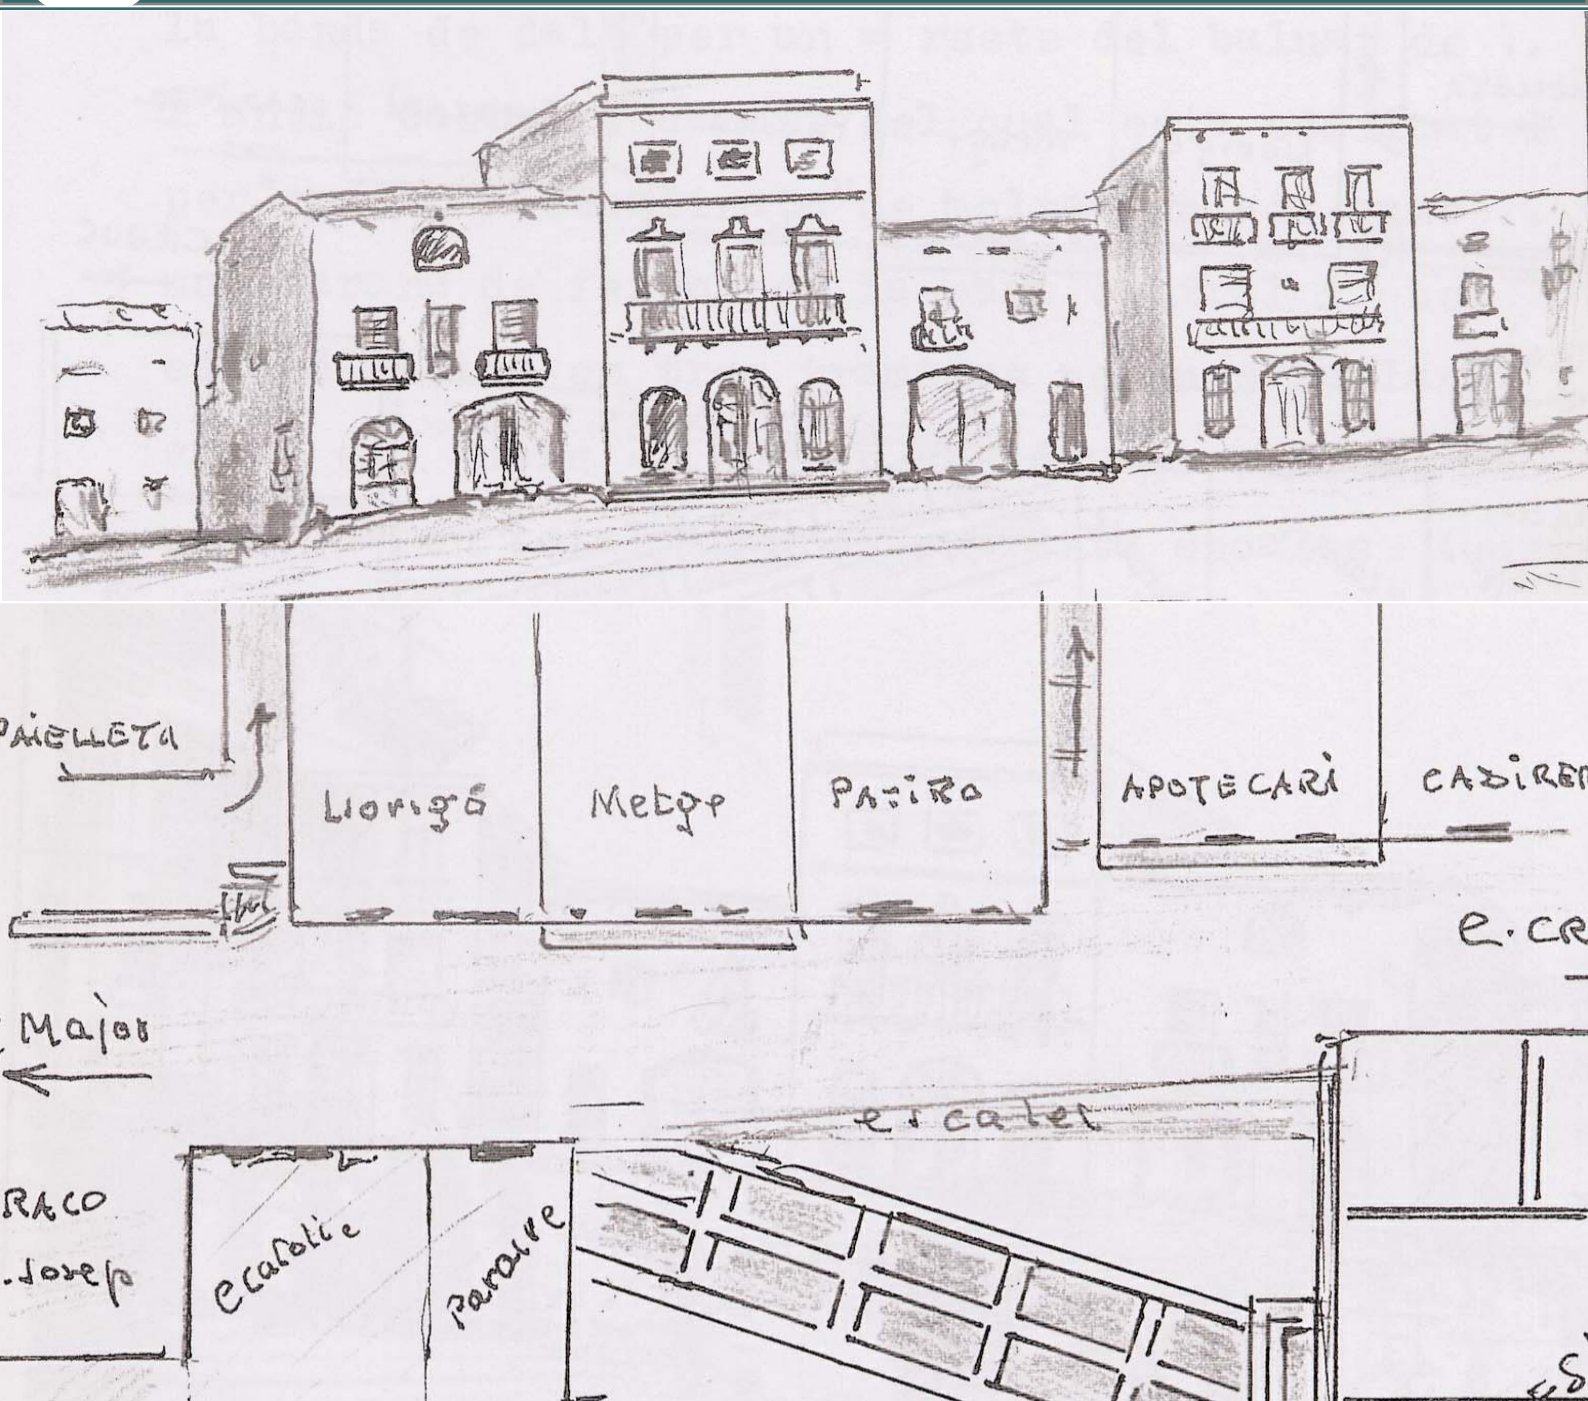 PAiELLETA
Llorigó
Metge
PATiRO
APOTECARi
CADiRER
e.CR
Major
escales
RACO
.Josep
ecatolic
Paraire